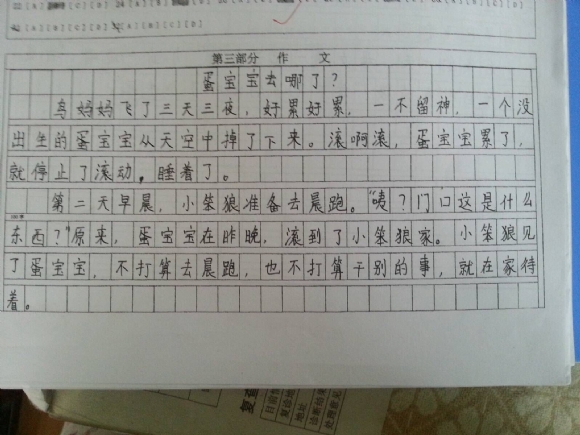 第三部分 作 文
蛋宝宝去哪了？
鸟妈妈飞了三天三夜，好累好累，一不留神，一个没
出生的蛋宝宝从天空中掉了下来。滚啊滚，蛋宝宝累了，
就停止了滚动。睡着了。
第二天早晨，小笨狼准备去晨跑。“咦？门口这是什么
东西？”原来，蛋宝宝在昨晚，滚到了小笨狼家。小笨狼见
了蛋宝宝，不打算去晨跑，也不打算干别的事，就在家待
着。
复查
日前
复诊地
地址
诊断结果
处理意见